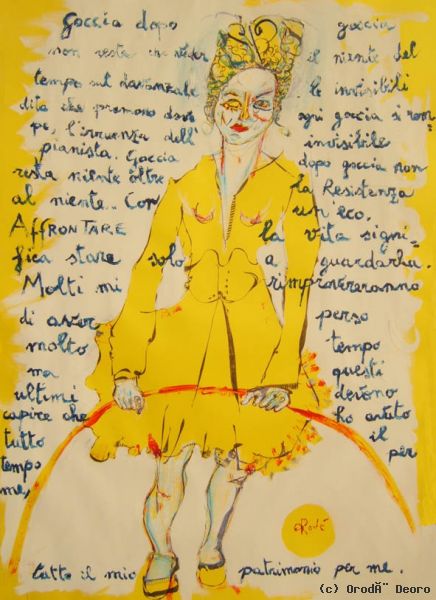 Goccia dopo goccia
non resta che veder il niente del
tempo sul davanzale le invisibili
dita che premono dove ogni goccia si rom-
pe, l'irruenza dell' invisibile
pianista. Goccia dopo goccia non
resta niente oltre la Resistenza
al niente. Con un eco.
AFFRONTARE la vita signi-
fica stare solo a guardarla.
Molti mi rimprovereranno
di aver perso
molto tempo
ma questi
ultimi devono
capire che ho avuto
tutto il
tempo per
me,
oRodè
tutto il mio patrimonio per me.
(c) OrodÃ¨ Deoro